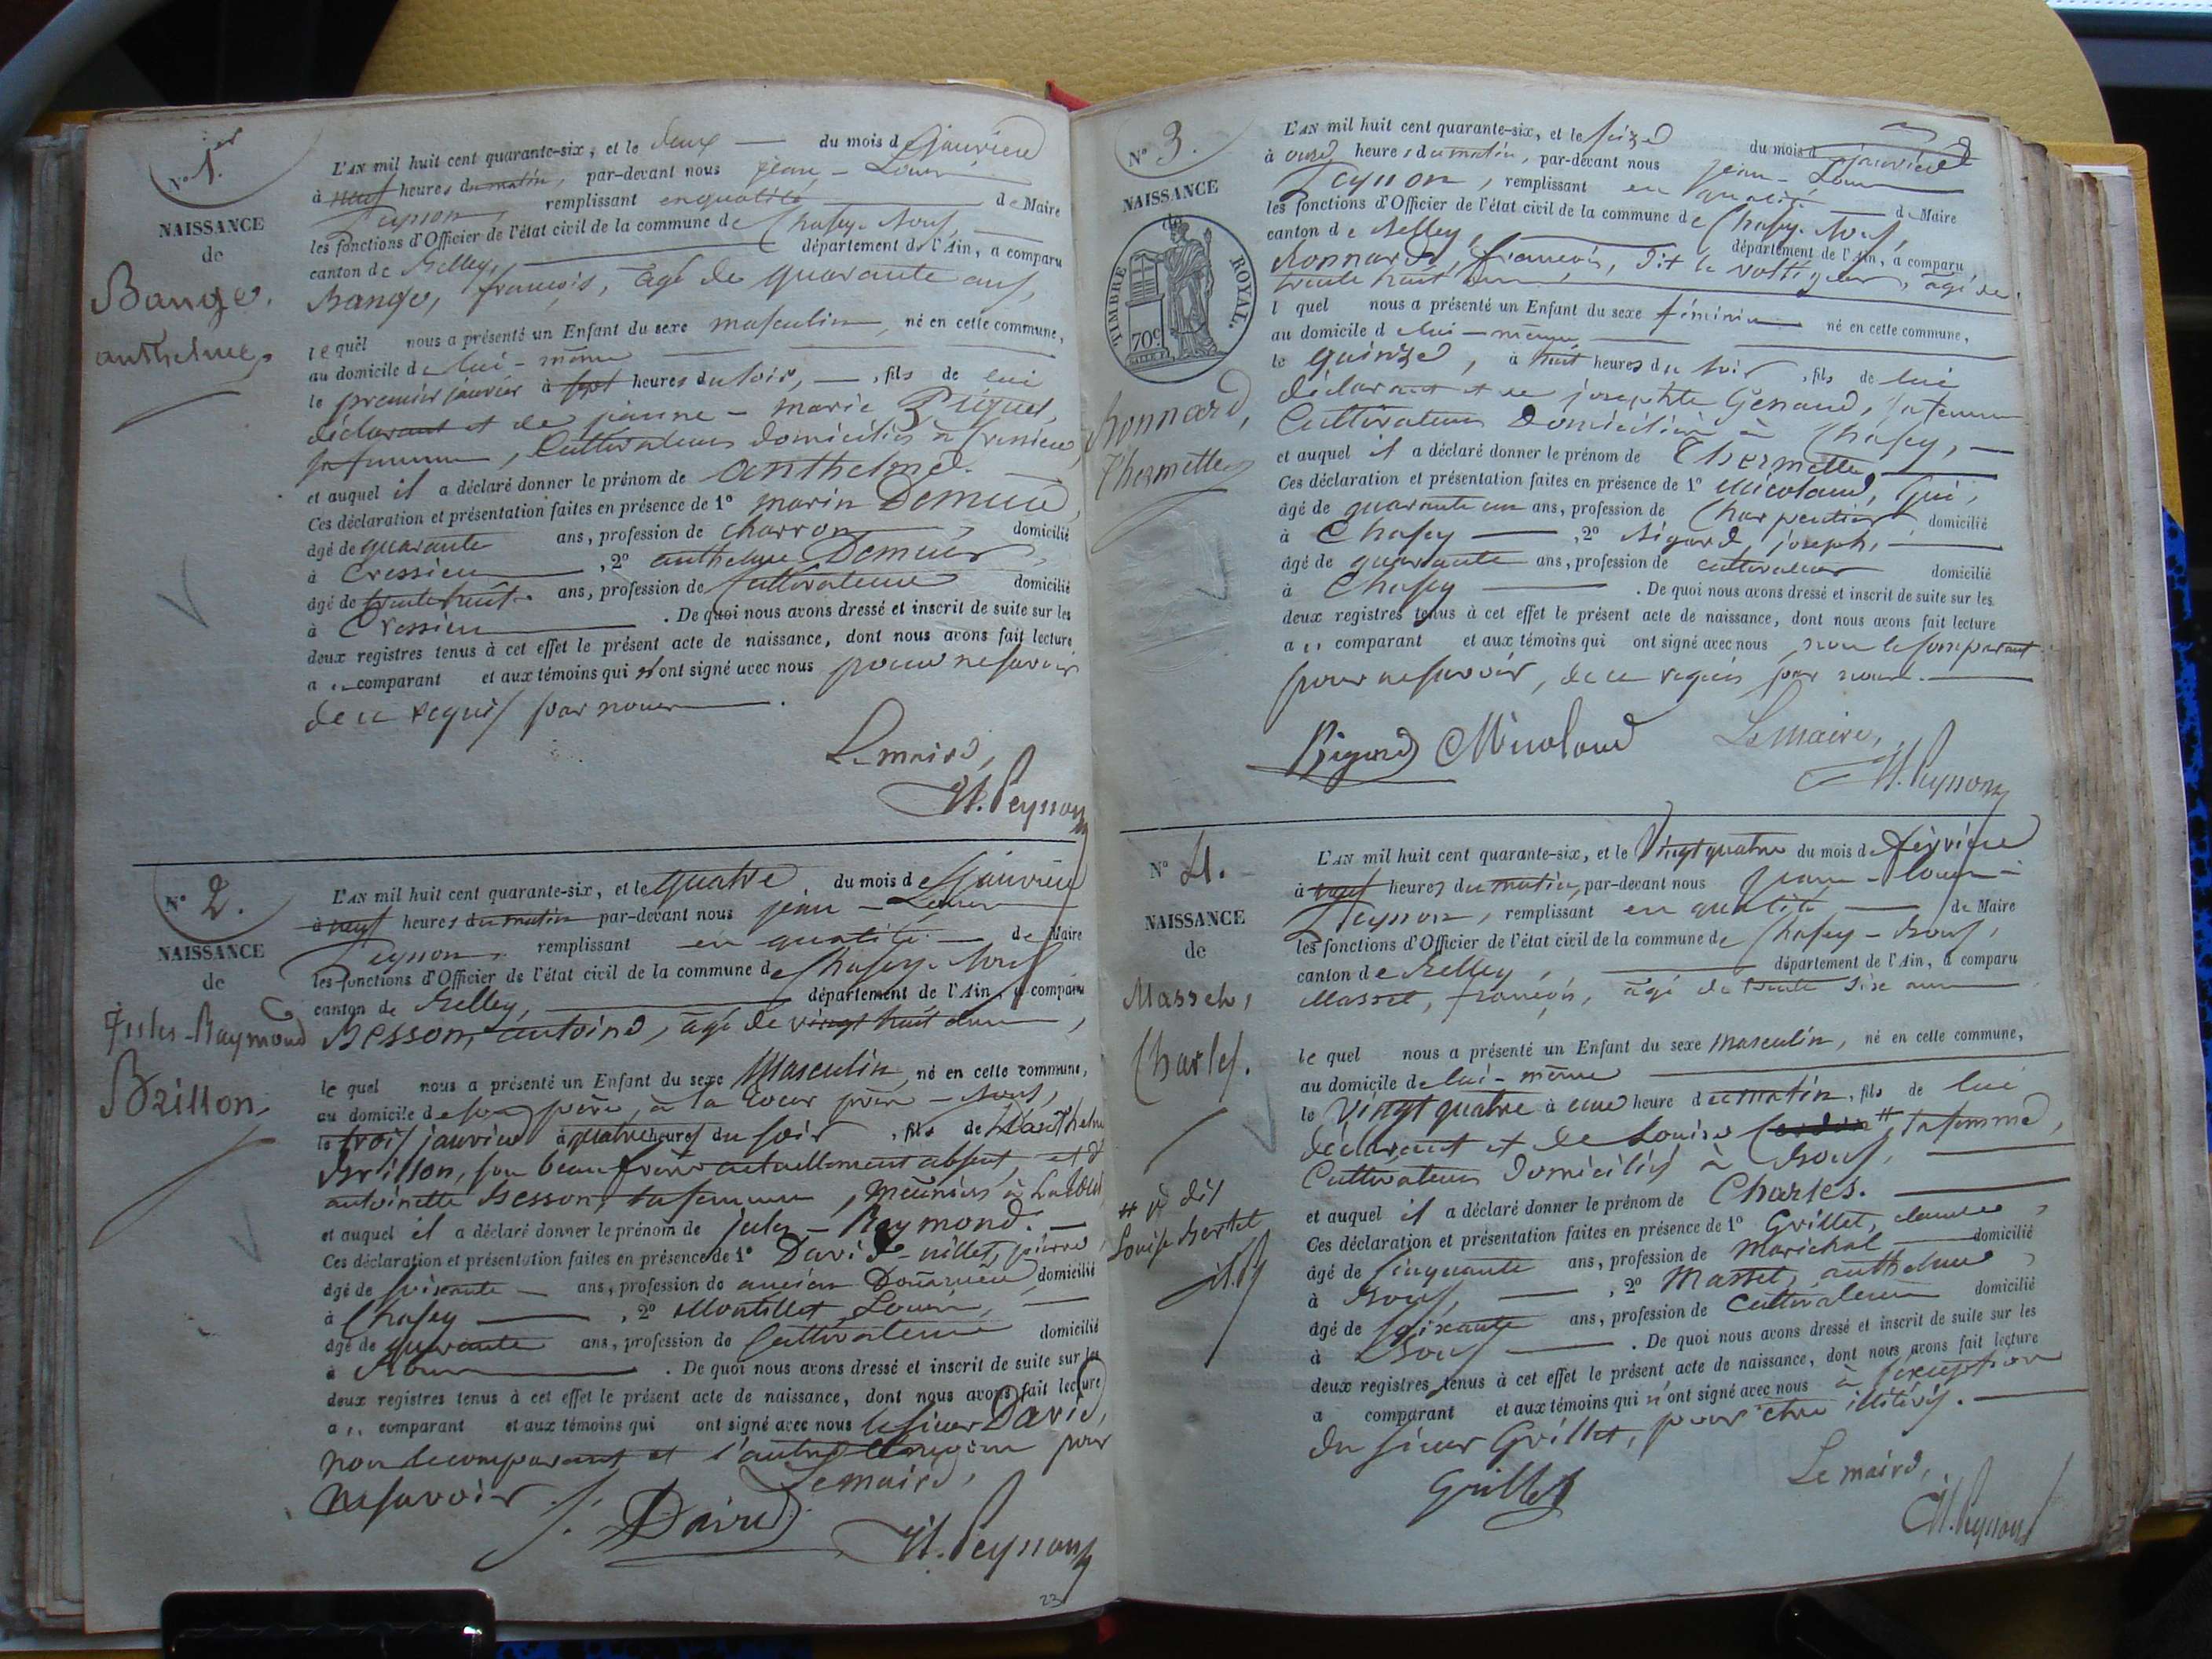 N° 1.er
NAISSANCE
de
Bange,
anthelme,
L'AN mil huit cent quarante-six, et le deux du mois de janvier
à neuf heures du matin, par-devant nous jean - Louis
Peysson, remplissant en qualité de Maire
les fonctions d'Officier de l'état civil de la commune de Chasey-Bons,
canton de Belley, département de l'Ain, a comparu
Bange, françois, âgé de quarante ans,
le quel nous a présenté un Enfant du sexe masculin, né en cette commune,
au domicile de lui-même
le premier janvier à sept heures du soir, fils de lui
déclarant et de jeanne - marie Briguet,
sa femme, Cultivateurs domiciliés à Cressieu,
et auquel il a déclaré donner le prénom de anthelme.
Ces déclaration et présentation faites en présence de 1° marin Demeure
âgé de quarante ans, profession de charron, domicilié
à Cressieu, 2° anthelme Demeure,
âgé de trente huit ans, profession de Cultivateur domicilié
à Cressieu. De quoi nous avons dressé et inscrit de suite sur les
deux registres tenus à cet effet le présent acte de naissance, dont nous avons fait lecture
au comparant et aux témoins qui n'ont signé avec nous pour ne savoir
de ce requis par nous.
Le maire,
Peysson
N° 2.
NAISSANCE
de
Jules-Raymond
Brillon,
L'AN mil huit cent quarante-six, et le quatre du mois de janvier
à neuf heures du matin par-devant nous jean - Louis
Peysson, remplissant en qualité de Maire
les fonctions d'Officier de l'état civil de la commune de Chasey-Bons
canton de Belley, département de l'Ain, a comparu
Besson, antoine, âgé de vingt huit ans,
le quel nous a présenté un Enfant du sexe Masculin, né en cette commune,
au domicile de son père, à la Cour près - Bons,
le trois janvier à quatre heures du soir, fils de anthelme
Brillon, son beau frère actuellement absent, et d'
antoinette Besson, sa femme, meuniers à
et auquel il a déclaré donner le prénom de jules - Raymond.
Ces déclaration et présentation faites en présence de 1° David-nillet, pierre
âgé de soixante ans, profession de ancien Douanier, domicilié
à Chasey, 2° Montillet, Louis,
âgé de quarante ans, profession de Cultivateur domicilié
à Bons. De quoi nous avons dressé et inscrit de suite sur les
deux registres tenus à cet effet le présent acte de naissance, dont nous avons fait lecture
au comparant et aux témoins qui ont signé avec nous le sieur David,
non le comparant et l'autre témoin pour
ne savoir.
Le maire,
David
Peysson
23
N° 3.
NAISSANCE
de
TIMBRE ROYAL.
70c
Bonnard,
Thermette
L'AN mil huit cent quarante-six, et le seize du mois de janvier
à onze heures du matin, par-devant nous jean - Louis
Peysson, remplissant en qualité de Maire
les fonctions d'Officier de l'état civil de la commune de Chasey-Bons,
canton de Belley, département de l'Ain, a comparu
Bonnard, françois, dit le voltigeur, âgé de
trente huit ans,
l quel nous a présenté un Enfant du sexe féminin né en cette commune,
au domicile de lui-même,
le quinze, à huit heures du soir, fils de lui
déclarant et de josephte Genand, sa femme
Cultivateurs Domiciliés à Chasey,
et auquel il a déclaré donner le prénom de Thermette
Ces déclaration et présentation faites en présence de 1° Micoland, Gui,
âgé de quarante un ans, profession de Charpentier domicilié
à Chasey, 2° Bigord, joseph,
âgé de quarante ans, profession de cultivateur domicilié
à Chasey. De quoi nous avons dressé et inscrit de suite sur les
deux registres tenus à cet effet le présent acte de naissance, dont nous avons fait lecture
au comparant et aux témoins qui ont signé avec nous non le comparant
pour ne savoir, de ce requis par nous.
Bigord Micoland Le maire,
Peysson
N° 4.
NAISSANCE
de
Masset,
Charles.
# dit
Louise Bertet
L'AN mil huit cent quarante-six, et le Vingt quatre du mois de février
à neuf heures du matin, par-devant nous jean - louis
Peysson, remplissant en qualité de Maire
les fonctions d'Officier de l'état civil de la commune de Chasey - Bons,
canton de Belley, département de l'Ain, a comparu
Masset, françois, âgé de trente six ans
le quel nous a présenté un Enfant du sexe Masculin, né en cette commune,
au domicile de lui-même
le Vingt quatre à une heure du matin, fils de lui
déclarant et de Louise # sa femme,
Cultivateurs domiciliés à Bons,
et auquel il a déclaré donner le prénom de Charles.
Ces déclaration et présentation faites en présence de 1° Grillet, claude,
âgé de cinquante ans, profession de Maréchal domicilié
à Bons, 2° Masset, anthelme,
âgé de soixante ans, profession de Cultivateur domicilié
à Bons. De quoi nous avons dressé et inscrit de suite sur les
deux registres tenus à cet effet le présent acte de naissance, dont nous avons fait lecture
a comparant et aux témoins qui n'ont signé avec nous à l'exception
du sieur Grillet, pour être illitérés.
Grillet
Le maire,
Peysson